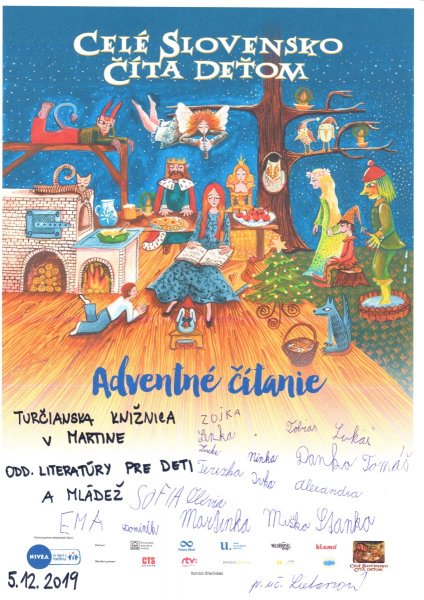 CELÉ SLOVENSKO
ČÍTA DEŤOM
Adventné čítanie
TURČIANSKA KNIŽNICA
V MARTINE
ODD. LITERATÚRY PRE DETI
A MLÁDEŽ
ZOJKA
Lenka
Tobias Lukáš
Ninka Danko Tomáš
Terezka Ivka Alexandra
SOFIA Olívia
EMA Dominik Martinka Miško
NIVEA
CTS
rtv:
u.
CELÉ SLOVENSKO
ČÍTA DEŤOM
5.12.2019
p. uč.